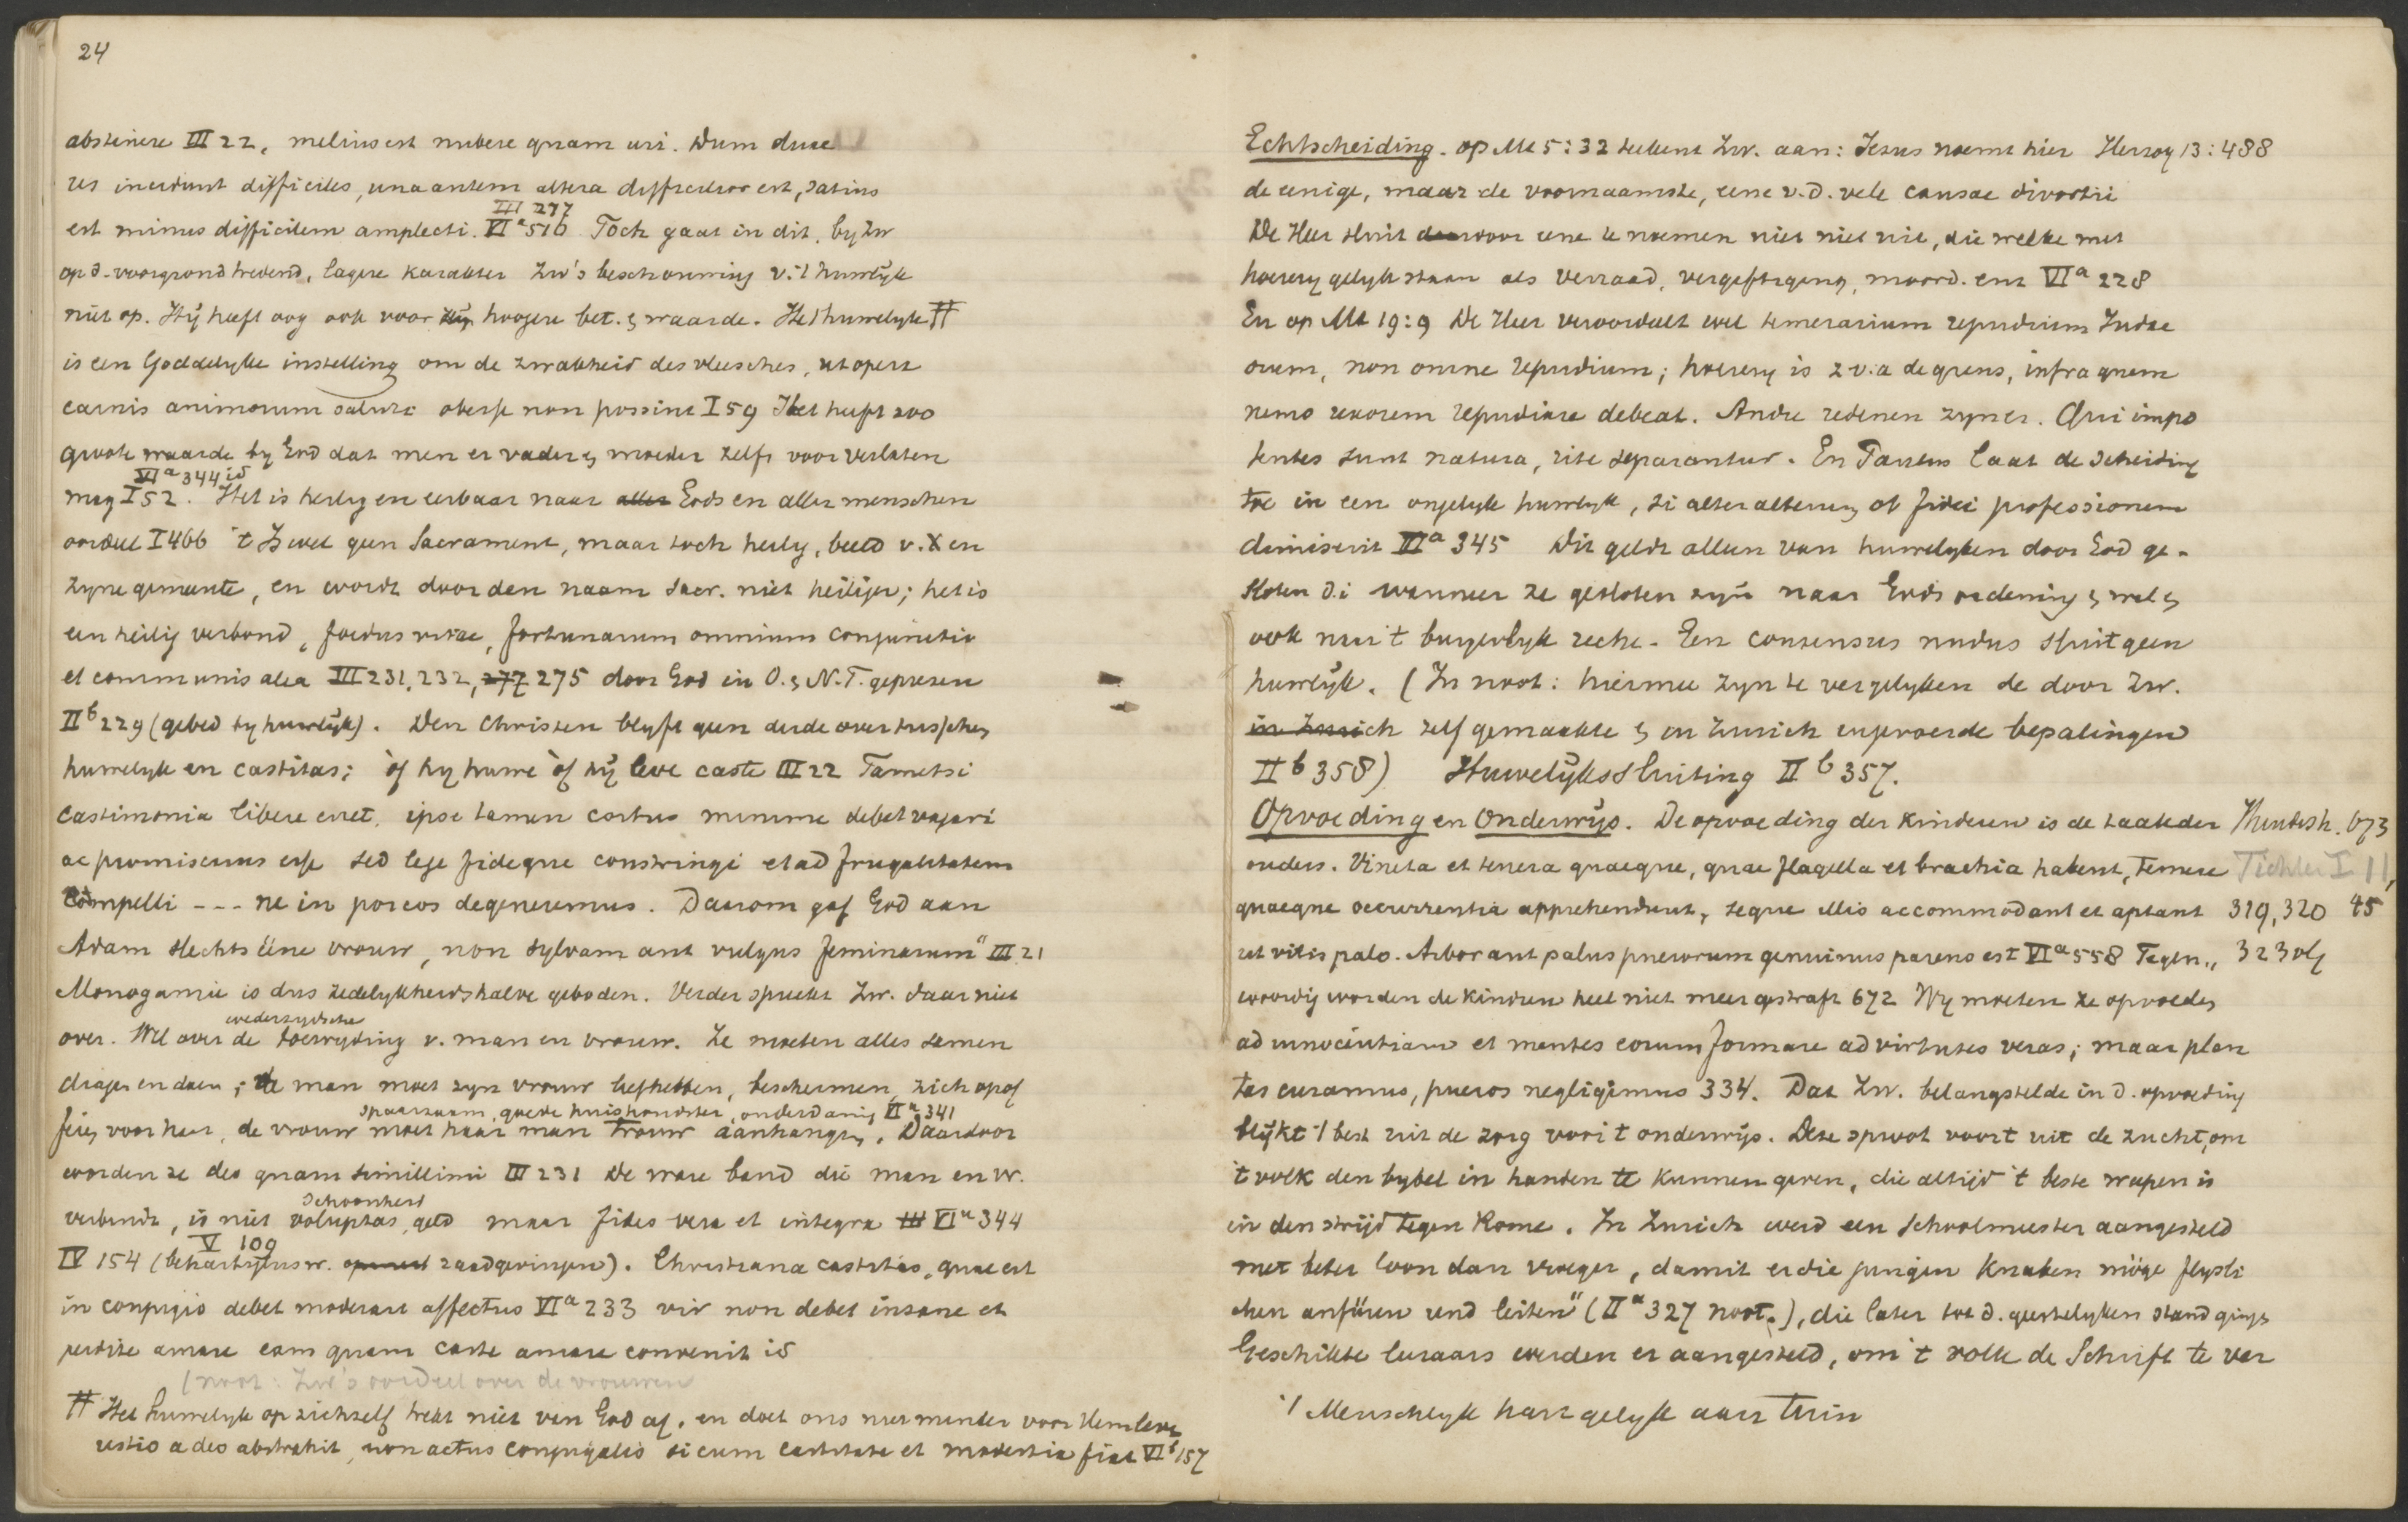 24
abstinere III 22, melius est nubere quam uri. Dum duae
res incidunt difficiles, una autem altera difficilior est, satius
III 277
est minus difficilem amplecti. VI a 516 Toch gaat in dit, by Zw
op d. voorgrond tredend, lagere karakter Zw's beschouwing v. 't huwelijk
niet op. Hij heeft oog ook voor hoogere bet. & waarde. Het huwelyk #
is een Goddelyke instelling om de zwakheid des vleesches, ut opera
carnis animorum saluti obesse non possint I 59 Het heeft zoo
groote waarde by God dat men er vader & moeder zelfs voor verlaten
VI a 344 id
mag I 52. Het is heilig en eerbaar naar aller Gods en aller menschen
oordeel I 466 't Is wel geen Sacrament, maar toch heilig, beeld v. X en
zyne gemeente, en wordt door den naam sacr. niet heiliger; het is
een heilig verbond, foedus vitae, fortunarum omnium conjunctio
et communis alea III 231, 232, 277 275 door God in O. & N. T. geprezen
II b 229 (gebed by huwelijk). Den Christen blyft geen derde over tusschen
huwelyk en castitas; òf hy huwe òf hij leve caste III 22 Tametsi
castimonia libere erret, ipse tamen coitus minime debet vagari
ac promiscuus esse sed lege fideque constringi et ad frugalitatem
compelli --- ne in porcos degeneremus. Daarom gaf God aan
Adam slechts ééne vrouw, non sylvam aut vulgus feminarum" III 21
Monogamie is dus zedelykheidshalve geboden. Verder spreekt Zw. daar niet
wederzydsche
over. Wel over de toewyding v. man en vrouw. Ze moeten alles samen
dragen en doen; de man moet zyn vrouw liefhebben, beschermen, zich opof
spaarzaam, goede huishoudster, onderdanig VI a 341
feren voor haar, de vrouw moet haar man trouw aanhangen. Daardoor
worden ze deo quam simillimi III 231 De ware band die man en vr.
schoonheid
verbindt, is niet voluptas, geld maar fides vera et integra III VI a 344
V 109
IV 154 (behartigens w. raadgevingen). Christiana castitas, quae est
in conjugio debet moderari affectus VI a 233 vir non debet insane et
perdite amare eam quam caste amare convenit id
(noot: Zw's oordeel over de vrouwen
# Het huwelyk op zichzelf trekt niet van God af, en doet ons niet minder voor Hem leven
ustio a deo abstrahit, non actus conjugalis si cum castitate et modestia fiat VI b 157
Echtscheiding. op Mt 5:32 teekent Zw. aan: Jezus noemt hier Herzog 13:488
de eenige, maar de voornaamste, eene v. d. vele causae divortii
De Heer sluit door eene te noemen niet niet uit, die welke met
hoerery gelyk staan als verraad, vergiftiging, moord. enz VI a 228
En op Mt 19:9 De Heer veroordeelt wel temerarium repudium Judae
orum, non omne repudium; hoerery is z v. a de grens, infra quem
nemo uxorem repudiare debeat. Andre redenen zyn er. Qui impo
tentes sunt natura, rite separantur. En Paulus laat de scheiding
toe in een ongelyk huwelyk, si alter alterum ob fidei professionem
dimiserit VI a 345 Dit geldt alleen van huwelyken door God ge-
sloten d.i wanneer ze gesloten zijn naar Gods ordening & wel &
ook naar 't burgerlyk recht. Een consensus nudus sluit geen
huwelijk. (In noot: hiermee zyn te vergelyken de door Zw.
in Zurich zelf gemaakte & in Zurich ingevoerde bepalingen
II b 358) Huwelijkssluiting II b 357.
Opvoeding en Onderwijs. De opvoeding der kinderen is de taak der 673
ouders. Vineta et tenera quaeque, quae flagella et brachia habent, temere Tichler I 11,
quaeque occurrentia apprehendunt, seque illis accommodant et aptant 319, 320 45
ut vitis palo. Arbor aut palus puerorum genuinus parens est VI a 558 Tegen„ 323 vlg
woordig worden de kindren heel niet meer gestraft 672 Wy moeten ze opvoeden
ad innocentiam et mentes eorum formare ad virtutes veras; maar plan
tas curamus, pueros negligimus 334. Dat Zw. belangstelde in d. opvoeding
blijkt 't best uit de zorg voor 't onderwijs. Deze sproot voort uit de zucht, om
't volk den bybel in handen te kunnen geven, die altijd 't beste wapen is
in den strijd tegen Rome. In Zurich werd een schoolmeester aangesteld
met beter loon dan vroeger, damit er die jungen Knaben möge flyssli
chen anfüren und leiten" (II a 327 noot.), die later toe d. geestelyken stand gingen
Geschikte leraars werden er aangesteld, om 't volk de Schrift te ver
·/ Menschlyk hart gelyk aan tuin